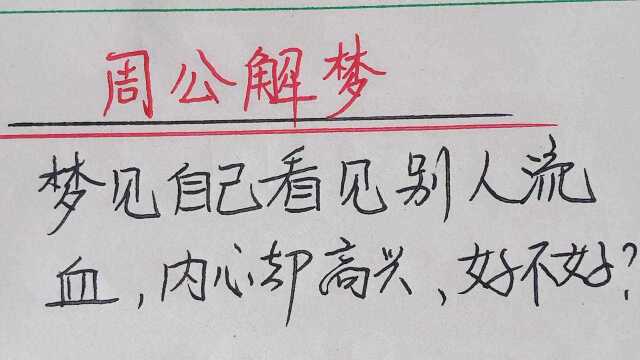 周公解梦
梦见自己看见别人流
血，内心却高兴，好不好？